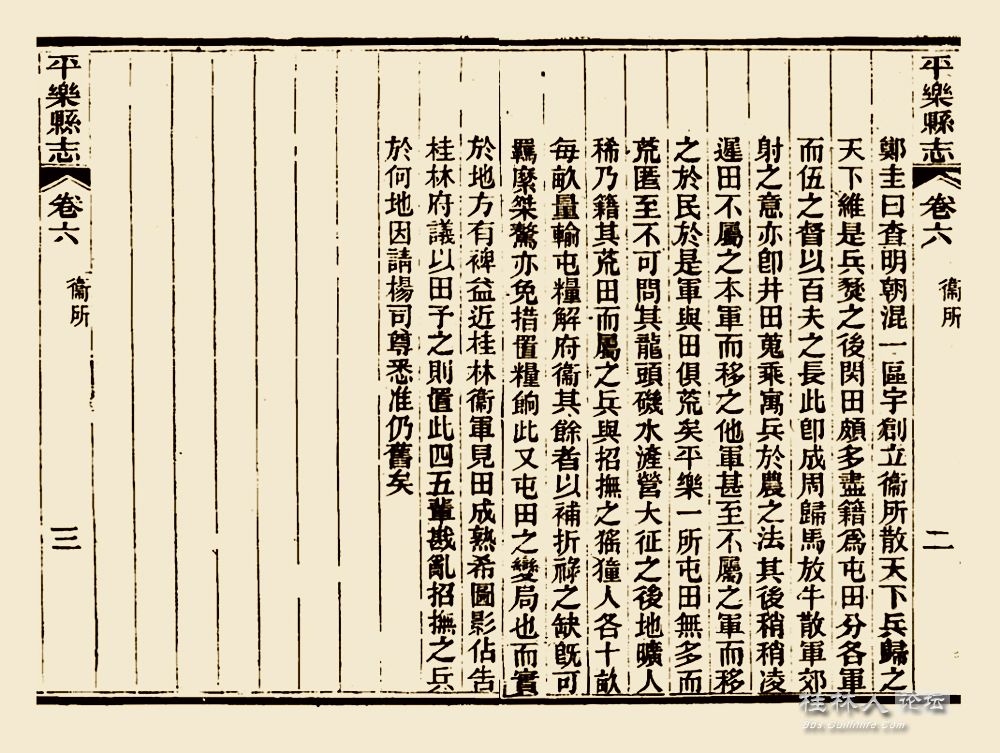 平樂縣志
卷六
衞所
二
鄭圭曰查明朝混一區宇創立衞所散天下兵歸之
天下維是兵燹之後閑田頗多盡籍爲屯田分各軍
而伍之督以百夫之長此卽成周歸馬放牛散軍郊
射之意亦卽井田蒐乘寓兵於農之法其後稍稍凌
遲田不屬之本軍而移之他軍甚至不屬之軍而移
之於民於是軍與田俱荒矣平樂一所屯田無多而
荒匿至不可問其龍頭磯水滻營大征之後地曠人
稀乃籍其荒田而屬之兵與招撫之猺獞人各十畝
每畝量輸屯糧解府衞其餘者以補折祿之缺旣可
羈縻桀驁亦免措置糧餉此又屯田之變局也而實
於地方有裨益近桂林衞軍見田成熟希圖影佔告
桂林府議以田予之則置此四五輩戡亂招撫之兵
於何地因請楊司尊悉准仍舊矣
平樂縣志
卷六
衞所
三
桂林人 论坛
bbs.guilinlife.com